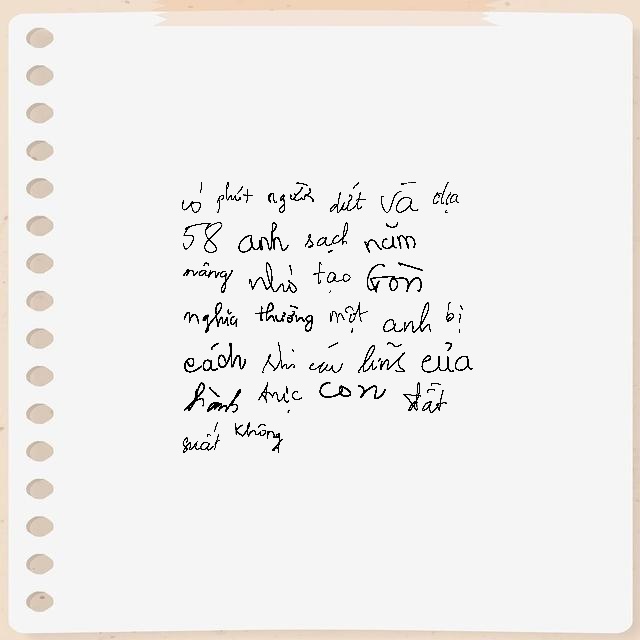 có phút người dứt và địa
58 anh sạch năm
nâng nhỏ tạo Gòn
nghĩa thường một anh bị
cách khi cứu lĩnh của
hành trực con đất
suất không